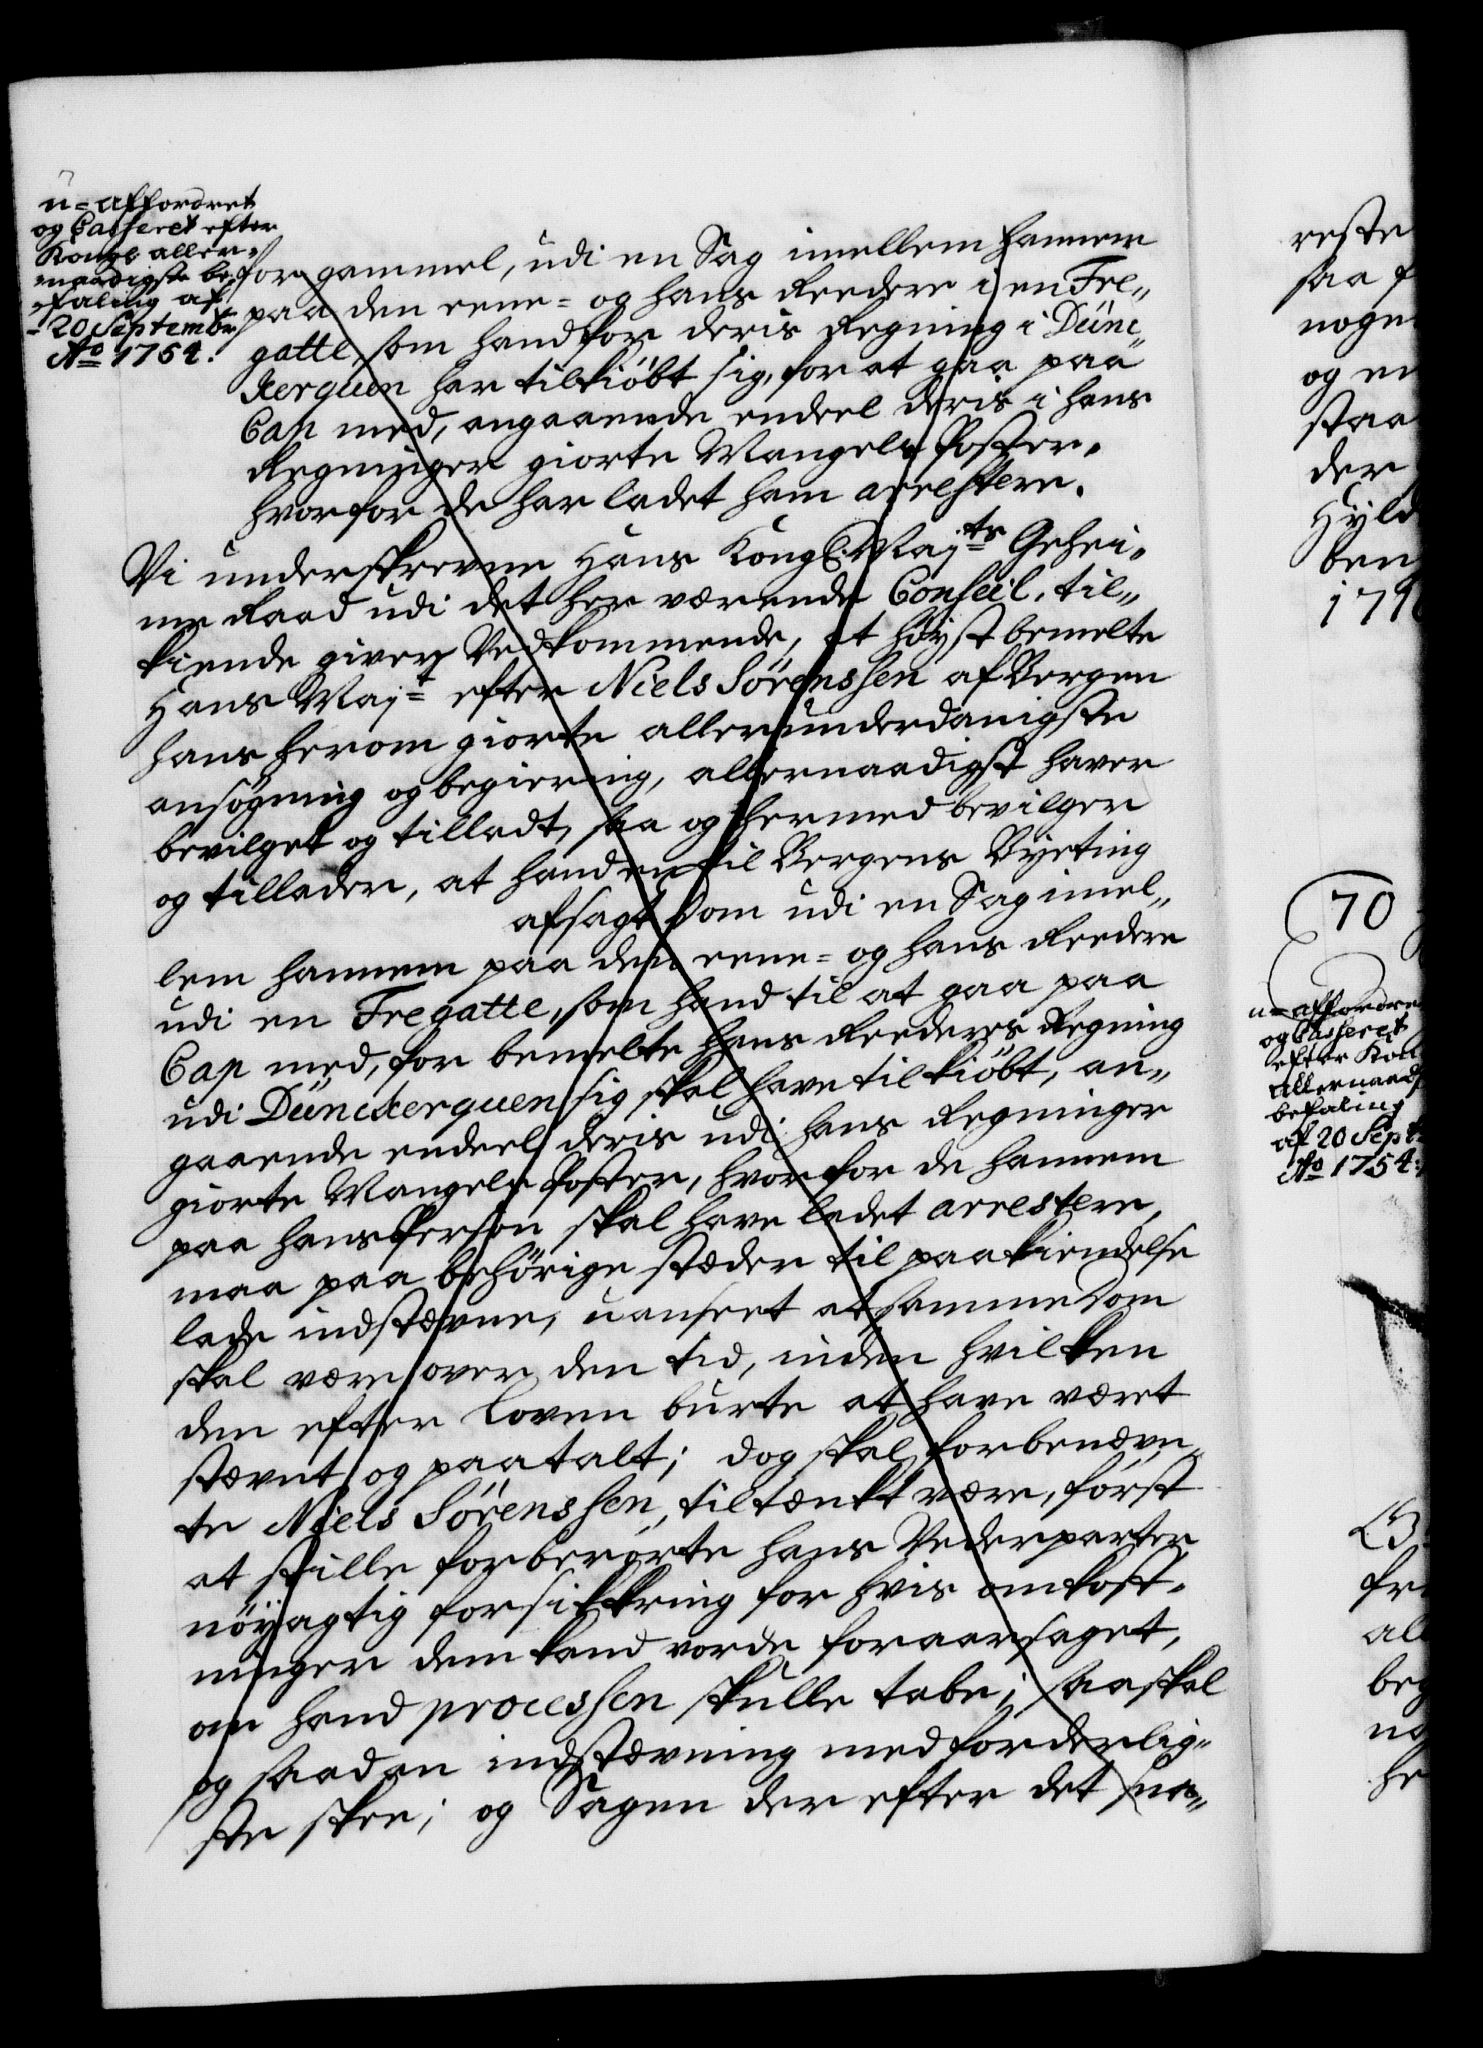 u-affordret
og Casseret efter
Kongl aller-
naadigste be-
faling af
20 Septembr
Ao 1754.
for gammel, udi en Sag imellem hannem
paa den eene- og hans Reedere i en Fre-
gatte, som hand for deris Regning i Dünc-
kerquen har tilkiöbt sig, for at gaa paa
Cap med, angaaende endeel deris i hans
Regninger giorte Mangels Poster,
hvorfor de har ladet ham arrestere.
Vi underskrevne Hans Kongl. Majts Gehei-
me Raad udi det her værende Conseil, til-
kiende giver Vedkommende, at höystbemelte
Hans Majt efter Niels Sörenssen af Bergen
hans herom giorte allerunderdanigste
ansögning og begiering, allernaadigst haver
bevilget og tilladt, saa og hermed bevilger
og tillader, at hand en til Bergens Byeting
afsagt Dom udi en Sag imel-
lem hannem paa den eene- og hans Reedere
udi en Fregatte, som hand til at gaa paa
Cap med, for bemelte hans Reederes Regning
udi Dünckerquen sig skal have tilkiöbt, an-
gaaende endeel deris udi hans Regninger
giorte Mangels Poster, hvorfor de hannem
paa hans Person skal have ladet arrestere,
maa paa behörige stæder til paakiendelse
lade indstævne, uanseet at samme Dom
skal være over den tid, inden hvilken
den efter Loven burte at have været
stævnt og paatalt; dog skal forbenævn-
te Niels Sörenssen, tiltænkt være, först
at stille forberörte hans Vederparter
nöyagtig forsikkring for hvis omkost-
ninger dem kand vorde foraarsaget,
om hand processen skulle tabe; saa skal
og saadan indstævning med forderlig-
ste skee; og Sagen der efter det sna-
reste
saa f
nogen
og en
staa
der
Hyld
ben
70
u-affordre
og Casseret
efter Kon
allernaad
befaling
af 20 Sept
Ao 1754.
fr
all
beg
no
he